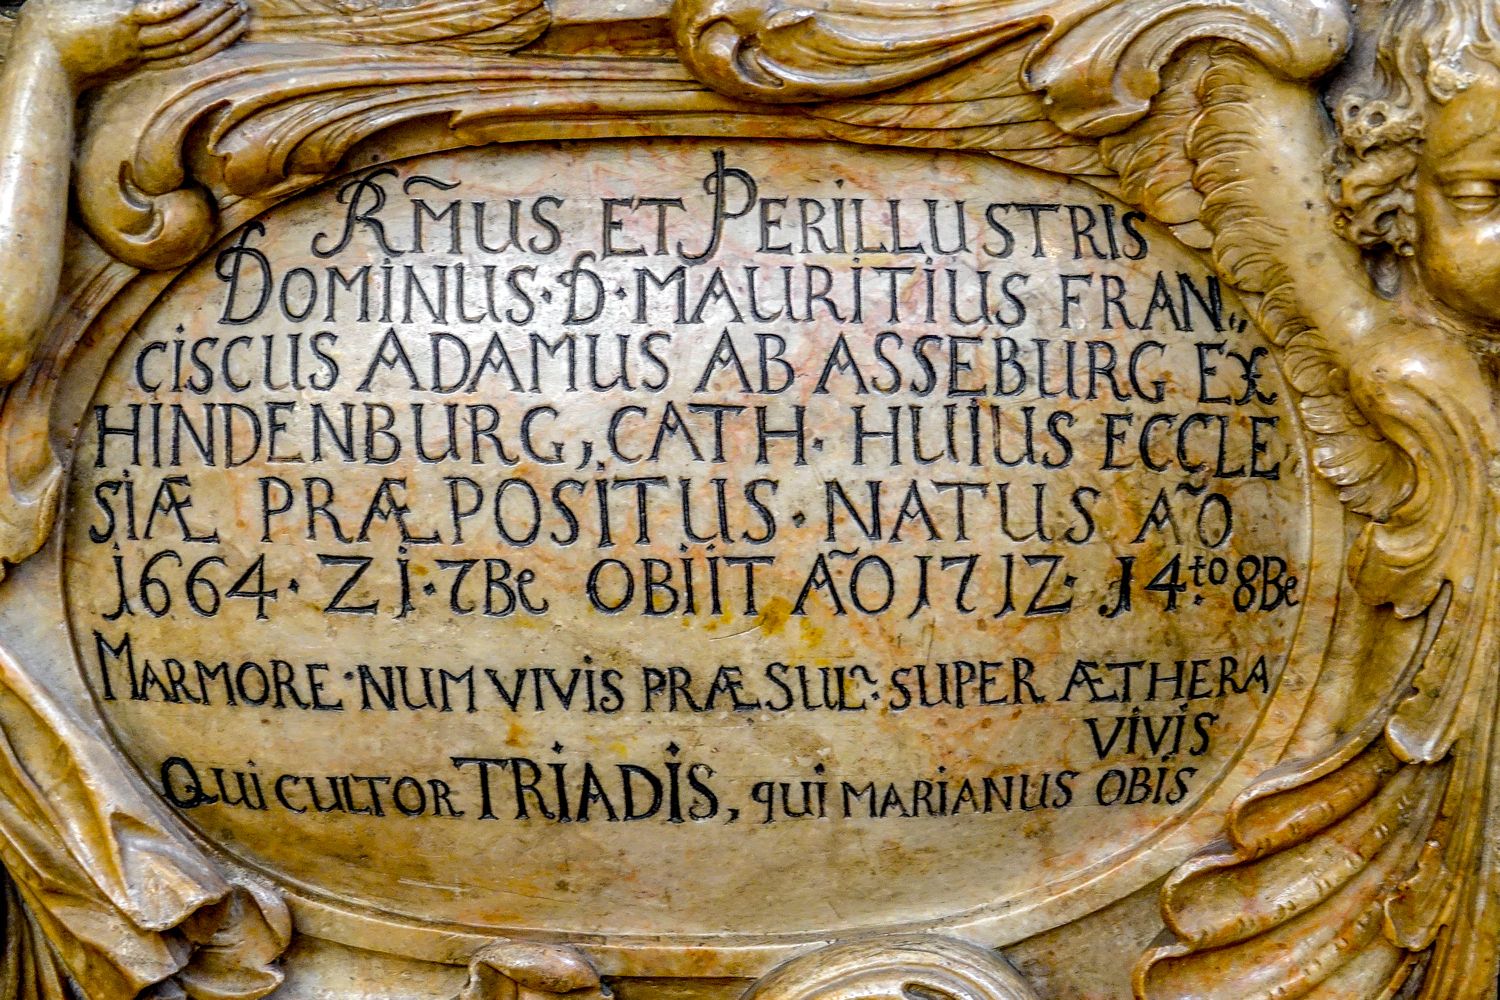 Rm̃us et Perillustris
Dominus · D · Mauritius Fran„
ciscus Adamus ab Asseburg ex
Hindenburg, Cath. huius Eccle
siæ Præpositus · natus Aõ
1664 · 21 · 7Be obiit Aõ 1712 · 14to. 8Be
Marmore · num vivis præsul: super æthera
vivis
Qui cultor TRIADIS, qui marianus obis